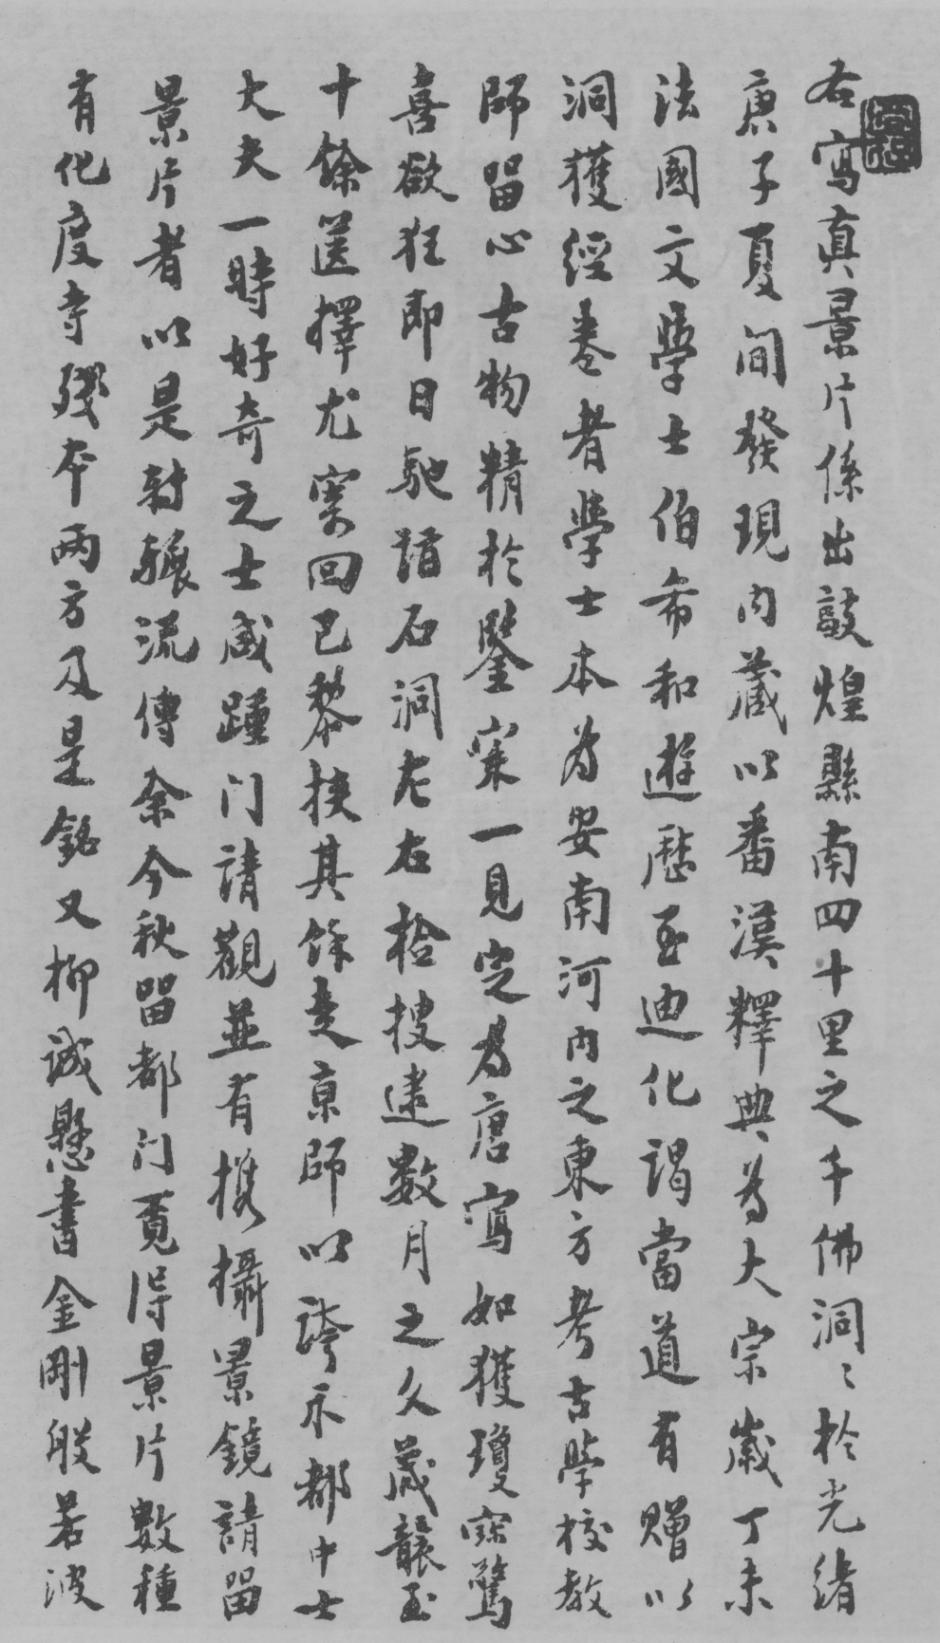 右寫真景片係出敦煌縣南四十里之千佛洞〻於光緒
庚子夏間發現内藏以番漢釋典為大宗歲丁未
法國文學士伯希和遊歷至迪化謁當道有贈以
洞獲經卷者學士本為安南河内之東方考古學校教
師留心古物精於鑒家一見定為唐寫如獲瓊寶驚
喜欲狂即日馳詣石洞左右拾搜逮數月之久蕆襲至
十餘篋擇尤寀回巴黎挾其餘走京師以誇示都中士
大夫一時好奇之士咸踵门請觀並有携攝景鏡請留
景片者以是封鑲流傳余今秋留都门覓得景片數種
有化度寺殘本兩方及是銘又柳誠懸書金剛般若波